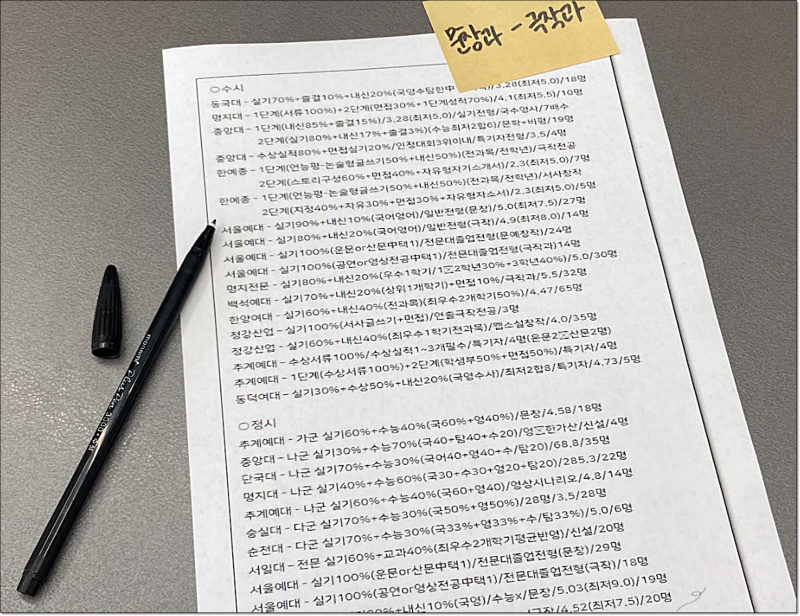 문창과 - 극작과
○수시
동국대 - 실기70%+출결10%+내신20%(국영수탐한中 /3.28(최저5.0)/18명
명지대 - 1단계(서류100%)+2단계(면접30%+1단계성적70%)/4.1(최저5.5)/10명
중앙대 - 1단계(내신85%+출결15%)/3.28(최저5.0)/실기전형/국수영사/7배수
2단계(실기80%+내신17%+출결3%)(수능최저2합6)/문학+비평/19명
중앙대 - 수상실적80%+면접실기20%/인정대회3위이내/특기자전형/3.5/4명
한예종 - 1단계(언능평-논술형글쓰기50%+내신50%)(전과목/전학년)/극작전공
2단계(스토리구성60%+면접40%+자유형자기소개서)/2.3(최저5.0)/7명
한예종 - 1단계(언능평-논술형글쓰기50%+내신50%)(전과목/전학년)/서사창작
2단계(지정40%+자유30%+면접30%+자유형자소서)/2.3(최저5.0)/5명
서울예대 - 실기90%+내신10%(국어영어)/5.0(최저7.5)/27명
서울예대 - 실기80%+내신20%(국어영어)/일반전형(문창)/4.9(최저8.0)/14명
서울예대 - 실기100%(운문or산문中택1)/일반전형(극작)/24명
서울예대 - 실기100%(공연or영상전공中택1)/전문대졸업전형(극작과)14명
명지전문 - 실기80%+내신20%(우수1학기/1 2학년30%+3학년40%)/5.0/30명
백석예대 - 실기70%+내신20%(상위1개학기)+면접10%/극작과/5.5/32명
한양여대 - 실기60%+내신40%(전과목)(최우수2개학기50%)/4.47/65명
정강산업 - 실기100%(서사글쓰기+면접)/연출극작전공/3명
정강산업 - 실기60%+내신40%(최우수1학기전과목)/웹소설창작/4.0/35명
추계예대 - 수상서류100%/수상실적1~3개필수/특기자/4명(운문2 산문2명)
추계예대 - 1단계(수상서류100%)+2단계(학생부50%+면접50%)/특기자/4명
동덕여대 - 실기30%+수상50%+내신20%(국영수사)/최저2합8/특기자/4.73/5명
○정시
추계예대 - 가군 실기60%+수능40%(국60%+영40%)/문창/4.58/18명
중앙대 - 나군 실기30%+수능70%(국40+탐40+수20)/영 한가산/신설/4명
단국대 - 나군 실기70%+수능30%(국어40+영40+수/탐20)/68.8/35명
명지대 - 나군 실기40%+수능60%(국30+수30+영20+탐20)/285.3/22명
추계예대 - 나군 실기60%+수능40%(국60+영40)/영상시나리오/4.8/14명
숭실대 - 다군 실기70%+수능30%(국50%+영50%)/28명/3.5/28명
순천대 - 다군 실기70%+수능30%(국33%+영33%+수/탐33%)/5.0/6명
서일대 - 전문 실기60%+교과40%(최우수2개학기평균반영)/신설/20명
서울예대 - 실기100%(운문or산문中택1)/전문대졸업전형(문창)/29명
서울예대 - 실기100%(공연or영상전공中택1)/전문대졸업전형(극작)/18명
서울예대 - +내신10%(국영)/수능x/문창/5.03(최저9.0)/19명
극작/4.52(최저7.5)/20명
monami Plus Pen 3000